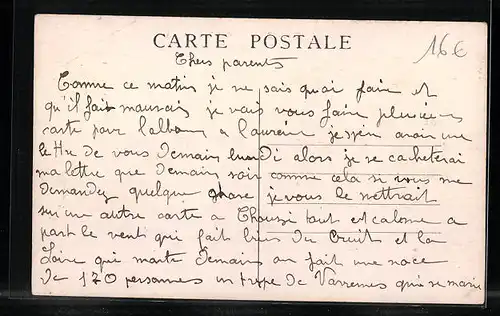 CARTE POSTALE
16 €
Chers parents
Comme ce matin je ne sais quoi faire et
qu'il fait mauvais je vais vous faire plusieurs
carte pour l'album a Laurein j'espère avoir une
lettre de vous demain lundi alors je ne cacheterai
ma lettre que demain soir comme cela si vous me
demandez quelque chose je vous le mettrait
sur une autre carte a tout est calome a
part le vent qui fait bien du bruit et la
Loire qui monte demain on fait une noce
de 170 personnes un type de Varennes qui se marie